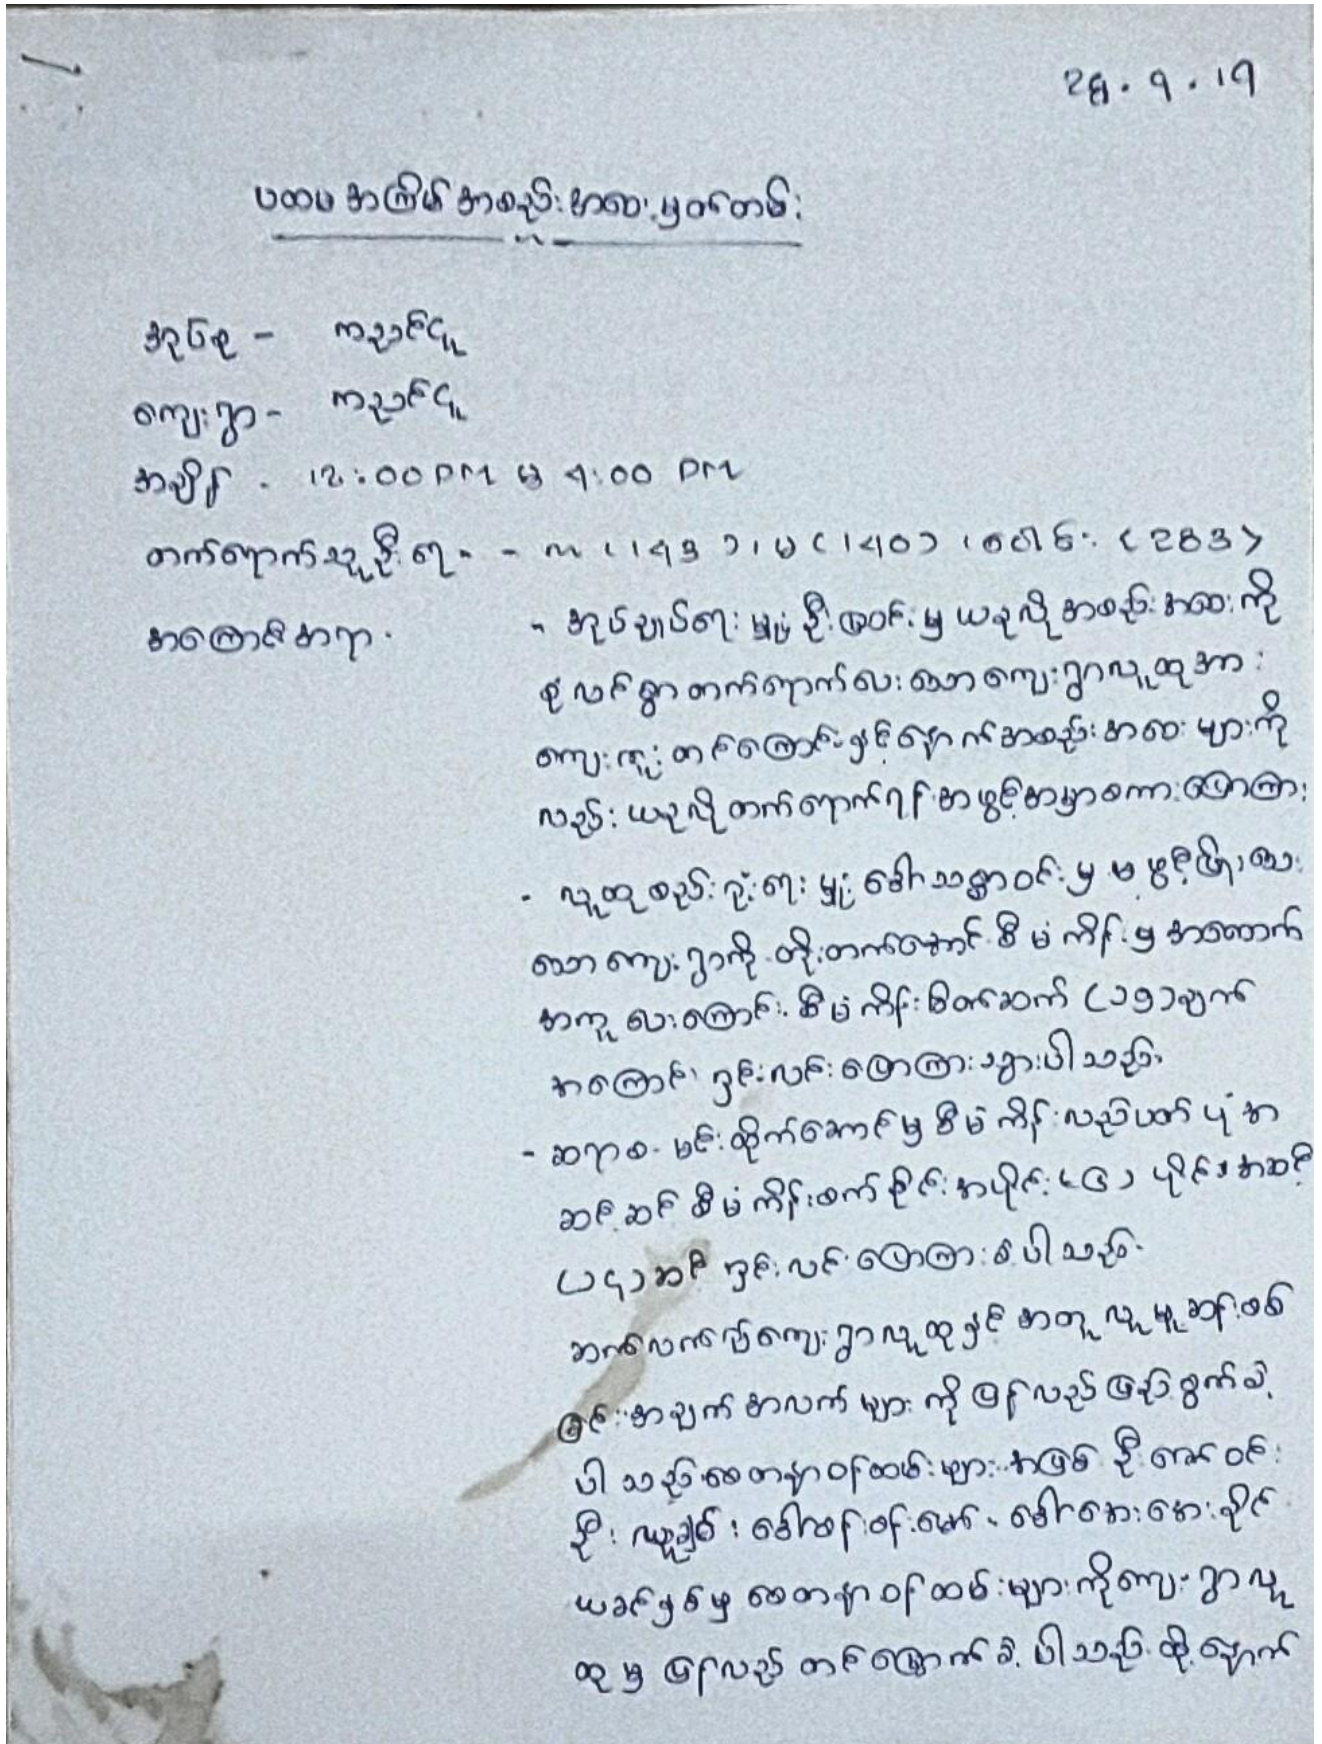 28.9.19
ပထမအကြိမ်အစည်းအဝေးမှတ်တမ်း
အုပ်စု - ကညင်ငူ
ကျေးရွာ - ကညင်ငူ
အချိန် - 12:00 PM မှ 4:00 PM
တက်ရောက်သူဦးရေ - - ကျား (143) ၊ မ (140) ၊ ပေါင်း (283)
အကြောင်းအရာ - - အုပ်ချုပ်ရေးမှူး ဦးမြဝင်းမှ ယခုလိုအစည်းအဝေးကို
စုံလင်စွာတက်ရောက်ပေးသောကျေးရွာလူထုအား
ကျေးဇူးတင်ကြောင်းနှင့်နောက်အစည်းအဝေးများကို
လည်းယခုလိုတက်ရောက်ရန်အဖွင့်အမှာစကားပြောကြား
- လူထုစည်းရုံးရေးမှူး ဒေါ်သစ္စာဝင်းမှ မဖွံ့ဖြိုးသေး
သောကျေးရွာကို တိုးတက်အောင်စီမံကိန်းမှအထောက်
အကူပေးကြောင်း စီမံကိန်းမိတ်ဆက် (၁၅)ချက်
အကြောင်း ရှင်းလင်းပြောကြားသွားပါသည်။
- ဆရာစ မင်းထိုက်အောင်မှစီမံကိန်းလည်ပတ်ပုံအ
ဆင့်ဆင့်စီမံကိန်းစက်ဝိုင်းအပိုင်း(၄)ပိုင်း၊အဆင့်
(၁၄)ဆင့် ရှင်းလင်းပြောကြားခဲ့ပါသည်။
ဆက်လက်၍ကျေးရွာလူထုနှင့်အတူလူမှုဆန်းစစ်
ခြင်းအချက်အလက်များကိုပြန်လည်ဖြည့်စွက်ခဲ့
ပါသည်။စေတနာ့ဝန်ထမ်းများအဖြစ် ဦးအောင်ဝင်း
ဦး ချစ် ၊ ဒေါ်စန်းစန်းမော် ၊ ဒေါ်အေးအေးခိုင်
ယခင်နှစ်မှစေတနာ့ဝန်ထမ်းများကိုကျေးရွာလူ
ထုမှပြန်လည်တင်မြှောက်ခဲ့ပါသည်။ထို့နောက်